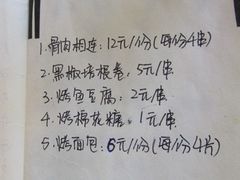 1.骨肉相连：12元/份(每份4串)
2.黑椒培根卷：5元/串
3.烤鱼豆腐：2元/串
4.烤棉花糖：1元/串
5.烤面包：6元/份(每份4片)